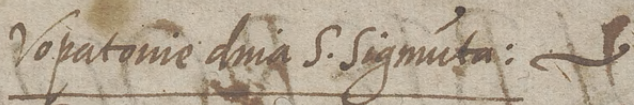 Vopatonie dnia S. Sigmūta: